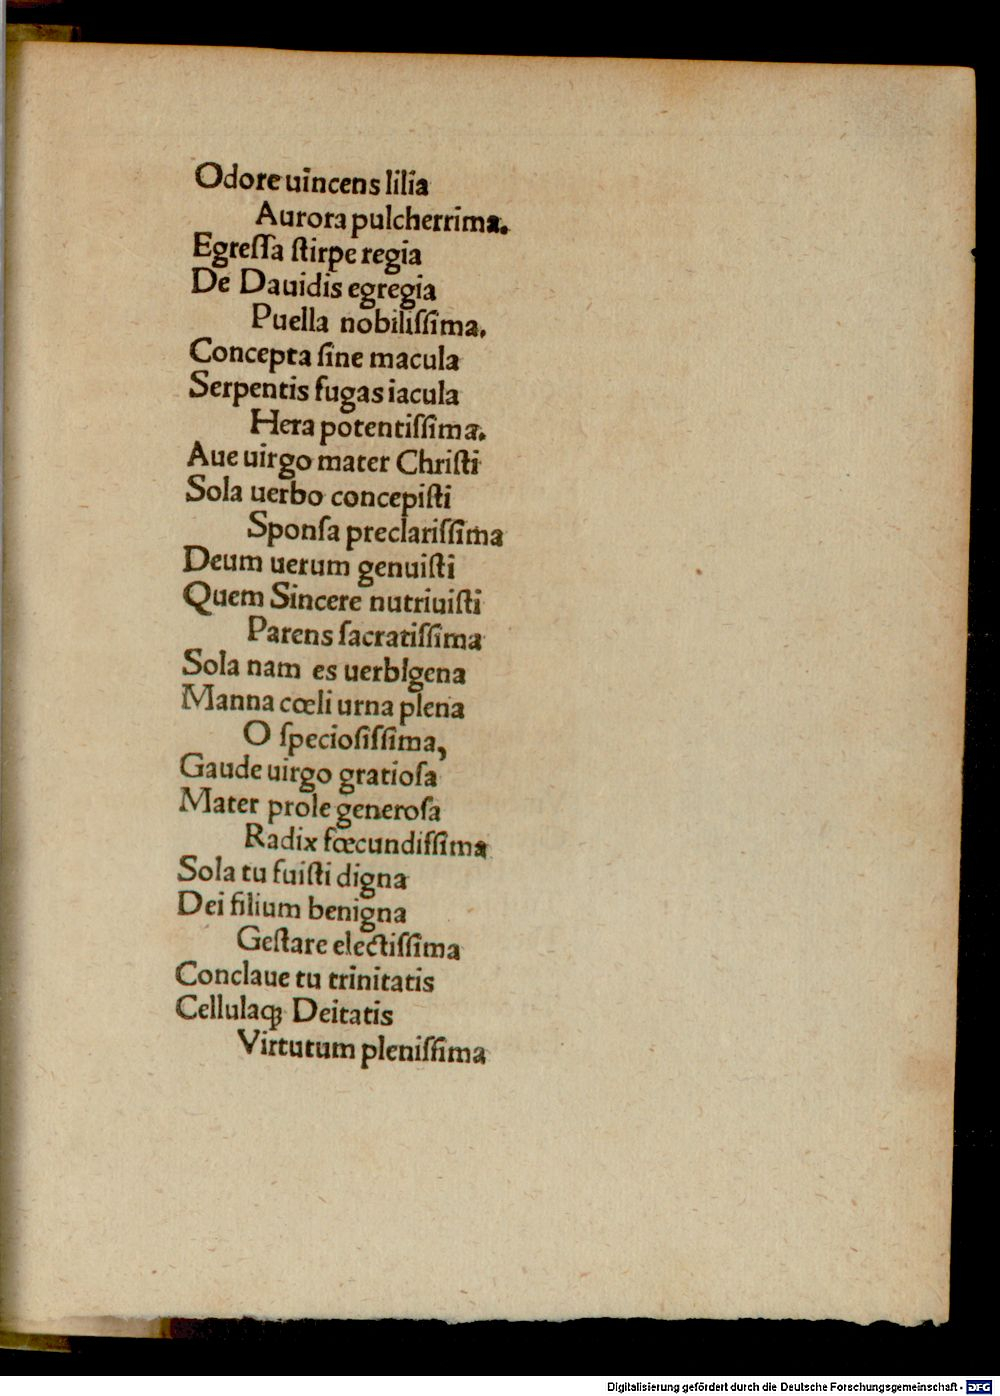 Odore uincens lilia
Aurora pulcherrima.
Egreſſa ſtirpe regia
De Dauidis egregia
Puella nobiliſſima.
Concepta ſine macula
Serpentis fugas iacula
Hera potentiſſima.
Aue uirgo mater Chriſti
Sola uerbo concepiſti
Sponſa preclariſſima
Deum uerum genuiſti
Quem Sincere nutriuiſti
Parens ſacratiſſima
Sola nam es uerbIgena
Manna cœli urna plena
O ſpecioſiſſima,
Gaude uirgo gratioſa
Mater prole generoſa
Radix fœcundiſſima
Sola tu fuiſti digna
Dei filium benigna
Geſtare electiſſima
Conclaue tu trinitatis
Cellulaqꝫ Deitatis
Virtutum pleniſſima
Digitalisierung gefördert durch die Deutsche Forschungsgemeinschaft - DFG